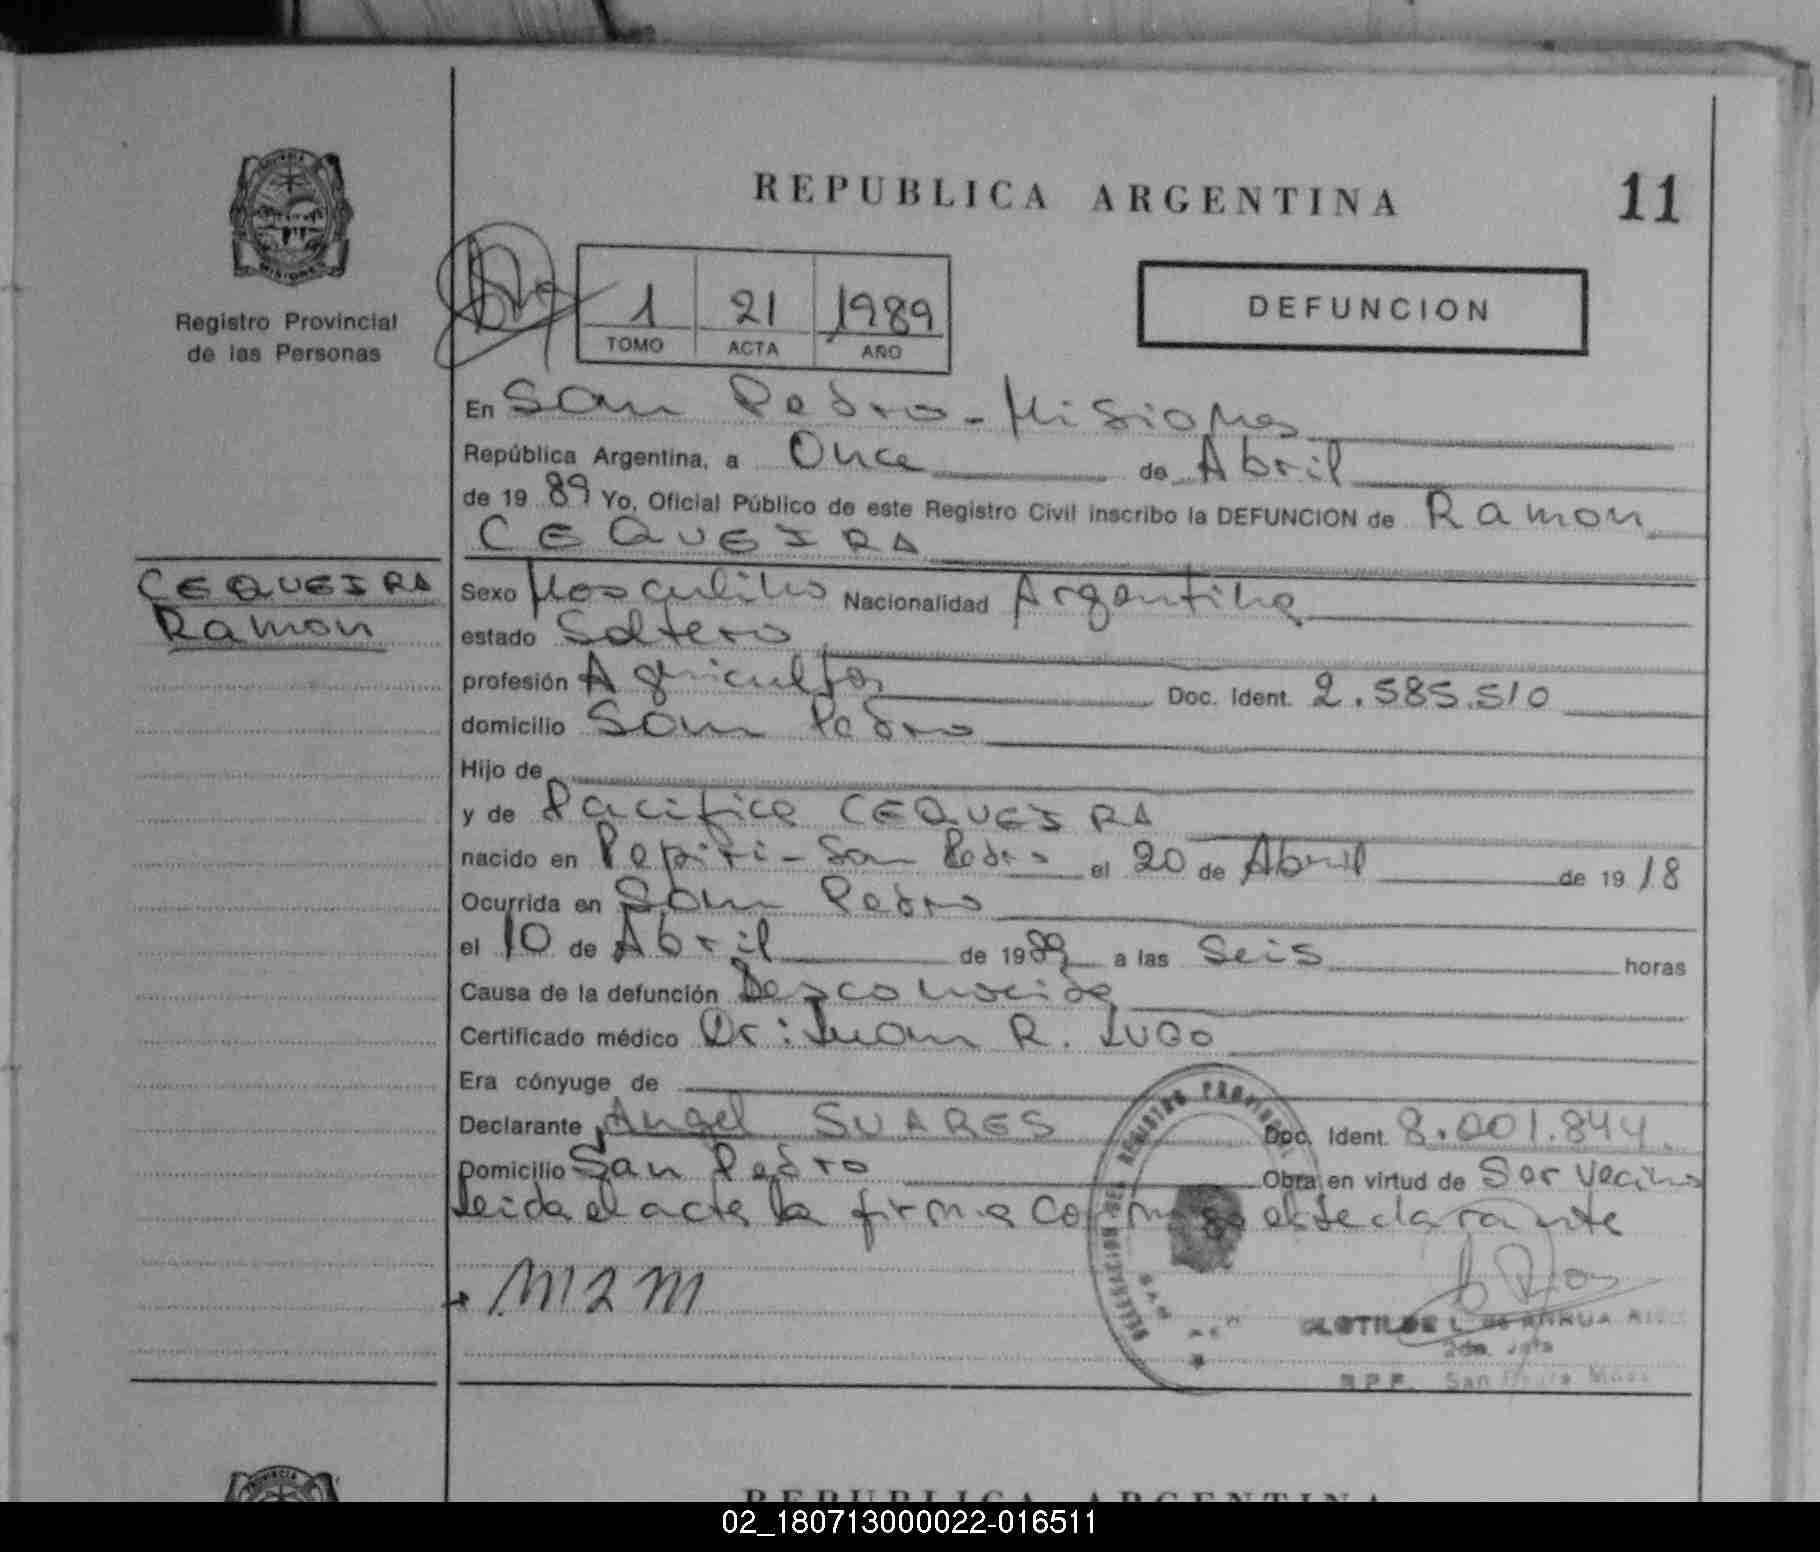 REPUBLICA ARGENTINA
11
PROVINCIA
MISIONES
Registro Provincial
de las Personas
1 21 1989
TOMO ACTA AÑO
DEFUNCION
En San Pedro - Misiones
República Argentina, a Once de Abril
de 19 89 Yo, Oficial Público de este Registro Civil inscribo la DEFUNCION de Ramon
CEQUEIRA
CEQUEIRA
Ramon
Sexo Masculino Nacionalidad Argentina
estado Soltero
profesión Agricultor Doc. Ident. 2.585.510
domicilio San Pedro
Hijo de
y de Pacifica CEQUEIRA
nacido en Pepiri - San Pedro el 20 de Abril de 19 18
Ocurrida en San Pedro
el 10 de Abril de 1989 a las Seis horas
Causa de la defunción Desconocida
Certificado médico Dr: Juan R. LUGO
Era cónyuge de
Declarante Angel SUARES Doc. Ident. 8.001.844.
Domicilio San Pedro Obra en virtud de Ser vecino
leida el acta la firma conmigo el declarante
DELEGACION DEL REGISTRO PROVINCIAL
CLOTILDE L.
2da. Jefa
R.P.P. San Pedro Mnes
PROVINCIA
REPUBLICA ARGENTINA
02_180713000022-016511